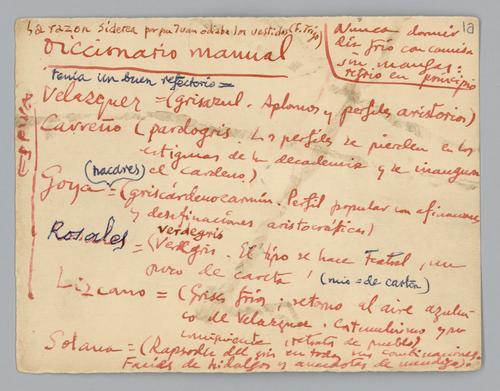 La razon siderea porque Juan odiaba los vestidos (F. Trigo)
1a
Nunca dormir
frio con camisa
sin mangas:
retrio en principio
Diccionario manual
tenia un buen refectorio =
España
Velazquez = (grisazul. Aplomos y perfiles aristorios)
Carreño (pardogris. Los perfiles se pierden en los
estigmas de la decadencia y se inaugura
el cardeno)
(nacares)
Goya = (griscárdenocarmin. Perfil popular con aficiones
y destinaciones aristocráticas)
verdegris
Rosales = (Verdegris. El tipo se hace teatral, un
poco de careta! (mio = de cartón)
Lizcano = (Grises frios, retorno al aire azulen
co de Velazquez. Costumbrismo y
retrato de pueblo)
Solana = (Rapsoda del gris en todas sus combinaciones.
Facies de hidalgos y anecdotas de)